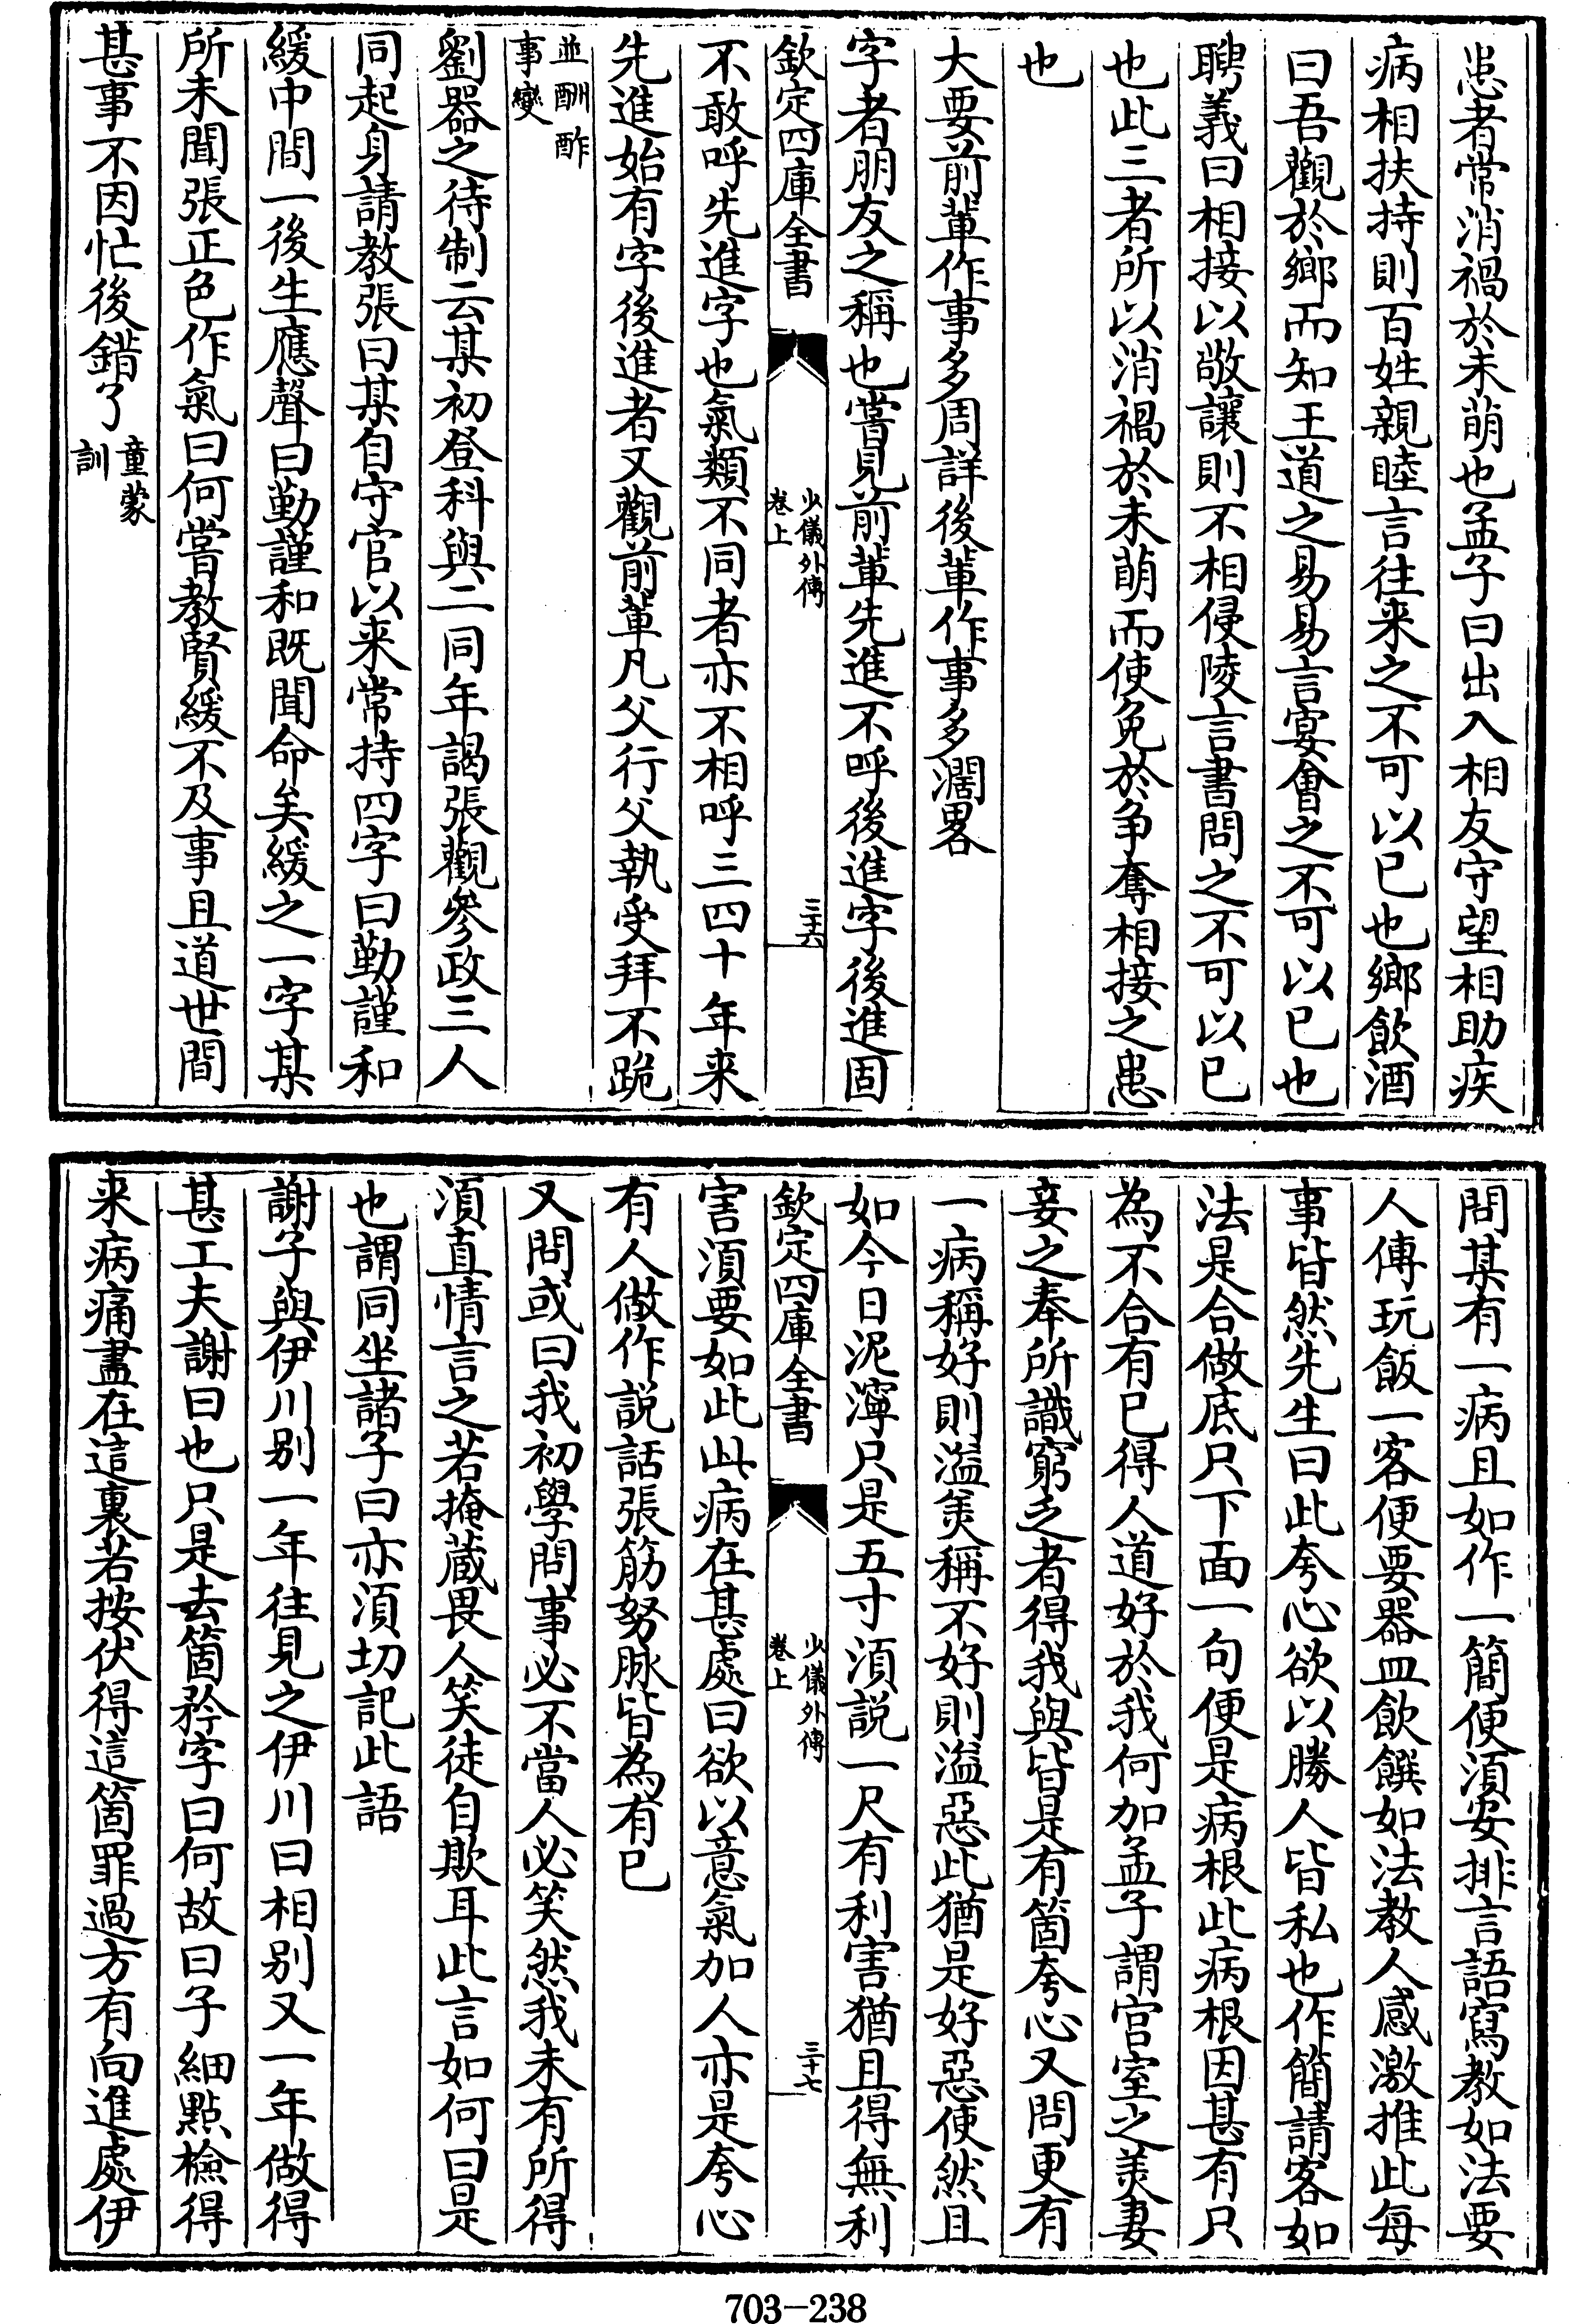 患者常消禍於未萌也孟子曰出入相友守望相助疾
病相扶持則百姓親睦言往来之不可以已也鄉飲酒
曰吾觀於鄉而知王道之易易言宴會之不可以已也
聘義曰相接以敬讓則不相侵陵言書問之不可以已
也此三者所以消禍於未萌而使免於争奪相接之患
也
大要前輩作事多周詳後輩作事多濶畧
字者朋友之稱也嘗見前輩先進不呼後進字後進固
欽定四庫全書
少儀外傳
卷上
三十六
不敢呼先進字也氣類不同者亦不相呼三四十年来
先進始有字後進者又觀前輩凡父行父執受拜不跪
並酬酢
事變
劉器之待制云某初登科與二同年謁張觀參政三人
同起身請教張曰某自守官以来常持四字曰勤謹和
緩中間一後生應聲曰勤謹和既聞命矣緩之一字某
所未聞張正色作氣曰何嘗教賢緩不及事且道世間
甚事不因忙後錯了
童蒙
訓
問某有一病且如作一簡便湏安排言語寫教如法要
人傳玩飯一客便要器皿飲饌如法教人感激推此每
事皆然先生曰此夸心欲以勝人皆私也作簡請客如
法是合做底只下面一句便是病根此病根因甚有只
為不合有已得人道好於我何加孟子謂宫室之羙妻
妾之奉所識窮乏者得我與皆是有箇夸心又問更有
一病稱好則溢羙稱不好則溢惡此猶是好惡使然且
如今日泥濘只是五寸湏説一尺有利害猶且得無利
欽定四庫全書
少儀外傳
卷上
三十七
害湏要如此此病在甚處曰欲以意氣加人亦是夸心
有人做作説話張筋努脉皆為有已
又問或曰我初學問事必不當人必笑然我未有所得
湏直情言之若掩蔵畏人笑徒自欺耳此言如何曰是
也謂同坐諸子曰亦湏切記此語
謝子與伊川别一年往見之伊川曰相别又一年做得
甚工夫謝曰也只是去箇矜字曰何故曰子細點檢得
来病痛盡在這裏若按伏得這箇罪過方有向進處伊
703-238